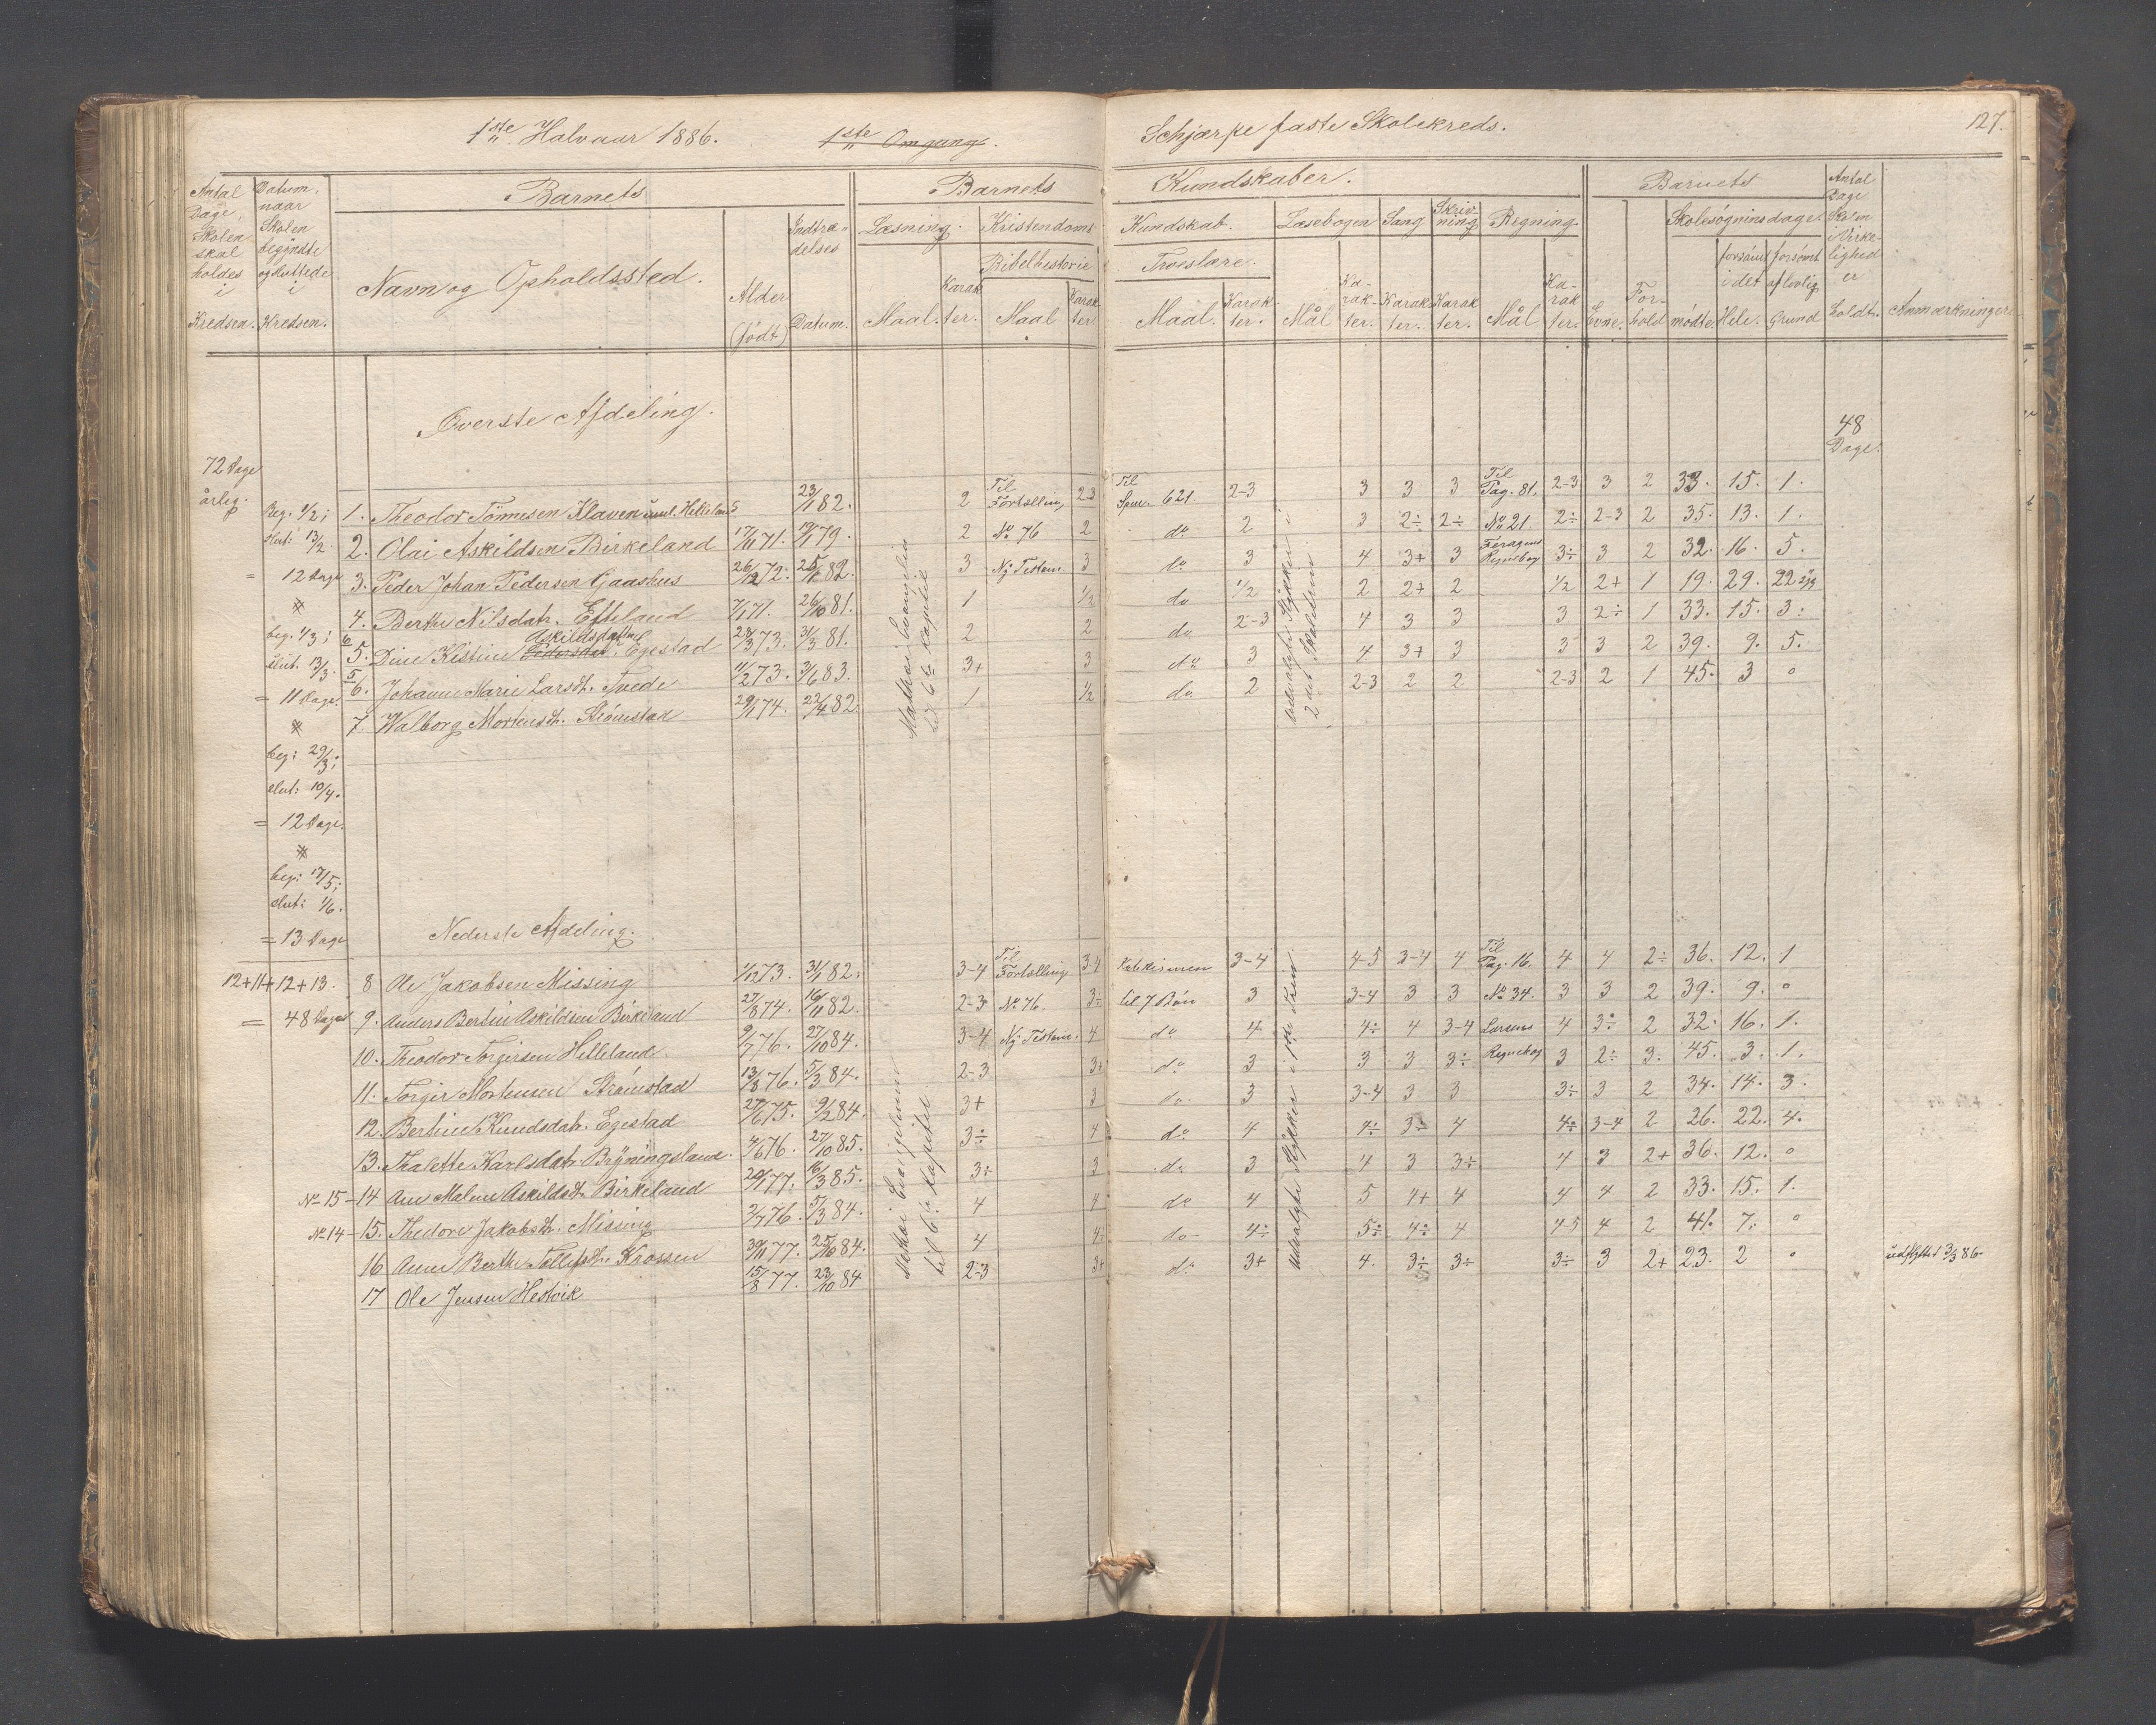 1ste Halvaar 1886. 1ste Omgang. Schjærpe faste Skolekreds. 127.
Antal Dage Skolen skal holdes i Kredsen.
Datum naar Skolen begyndte og sluttede i Kredsen.
Barnets
Navn og Opholdssted.
Alder (født)
Indtrædelses Datum.
Barnets Kundskaber.
Læsning.
Maal. Karakter.
Kristendoms Kundskab.
Bibelhistorie
Maal Karakter
Troeslære.
Maal. Karakter.
Læsebogen
Mål Karakter.
Sang
Karakter.
Skrivning
Karakter.
Regning.
Mål Karakter.
Barnets
Evne. Forhold
Skolesøgningsdage.
mødte. forsømt i det Hele. forsømt af lovlig Grund
Antal Dage Skolen i Virkelighed er holdt.
Anmærkninger
Øverste Afdeling.
48 Dage.
72 Dage årleg.
Beg. 1/2; slut: 13/2
= 12 Dage
beg. 1/3; slut. 13/3.
= 11 Dage.
beg: 29/3; slut: 10/4.
= 12 Dage.
beg: 17/5; slut: 1/6.
= 13 Dage
12+11+12+13.
= 48 Dage
Mathæi Evangelium til 6te Kapitel
udvalgte Stykker i 2det Skoletrin
1. Theodor Tønnesen Klaven Helleland 23/1 82. 2 Til Fortælling 2-3 Til Spm. 621 2-3 3 3 3 Til Pag. 81. 2-3 3 2 33. 15. 1.
2. Olai Askildsen Birkeland 17/11 71. 19/1 79. 2 No 76 2 do 2 3 2÷ 2÷ No 21. 2÷ 2-3 2 35. 13. 1.
3. Peder Johan Pedersen Gaashus 26/12 72. 25/1 82. 3 Ny Testam. 3 do 3 4 3+ 3 Regnebog 3÷ 3 2 32. 16. 5.
4. Berthe Nilsdatr. Efteland 7/1 71. 26/10 81. 1 1/2 do 1/2 2 2+ 2 1/2 2+ 1 19. 29. 22 syg
6 5. Dine Kistine Pedersdatr. Askildsdatter Egestad 28/3 73. 31/3 81. 2 2 do 2-3 4 3 3 3 2÷ 1 33. 15. 3.
5 6. Johanne Marie Larsdt. Tvede 11/2 73. 3/6 83. 3+ 3 do 3 4 3+ 3 3 3 2 39. 9. 5.
7. Walborg Mortensdt. Strömstad 29/1 74. 22/4 82. 1 1/2 do. 2 2-3 2 2 2-3 2 1 45. 3 0
Nederste Afdeling.
Mathæi Evangelium til 6te Kapitel
udvalgte Stykker i 1ste Trin
8 Ole Jakobsen Missing 1/12 73. 31/1 82. 3-4 Til Fortælling 3-4 Katekismen 3-4 4-5 3-4 4 Til Pag. 16. 4 4 2÷ 36. 12. 1
9. Anders Bertin Askildsen Birkeland 27/8 74. 16/11 82. 2-3 No 76. 3÷ til 7 Bøn 3 3-4 3 3 No 34. 3 3 2 39. 9. 0
10. Theodor Torgersen Helleland. 9/7 76. 27/10 84. 3-4 Ny Testam. 4 do 4 4÷ 4 3-4 Larsens 4 3÷ 2 32. 16. 1.
11. Torger Mortensen Strömstad 13/8 76. 5/3 84. 2-3 3+ do 3 3 3 3÷ Regnebog 3 2÷ 3. 45. 3. 1.
12. Bertine Knudsdatr. Egestad 27/6 75. 9/2 84. 3+ 3 do 3 3-4 3 3 3÷ 3 2 34. 14. 3.
13. Thalette Karlsdatr. Bryningsland. 4/6 76. 27/10 85. 3÷ 4 do 4 4÷ 3÷ 4 4÷ 3-4 2 26. 22. 4.
No 15 – 14 Ane Malene Askildsdt. Birkeland 20/1 77. 16/3 85. 3÷ 3 do 3 4 3 3÷ 4 3 2+ 36. 12. 0
No 14 – 15. Thedore Jakobsdt. Missing 2/7 76. 5/3 84. 4 4 do 4 5 4+ 4 4 4 2 33. 15. 1.
16 Anne Berthe Tollefsdt. Krossen 30/11 77. 25/10 84. 4 4÷ do 4÷ 5÷ 4÷ 4 4-5 4 2 41. 7. 0
17 Ole Jensen Hestvik 15/8 77. 23/10 84 2-3 3+ do 3+ 4. 3÷ 3÷ 3÷ 3 2+ 23. 2 0 udflyttet 3/3 86.